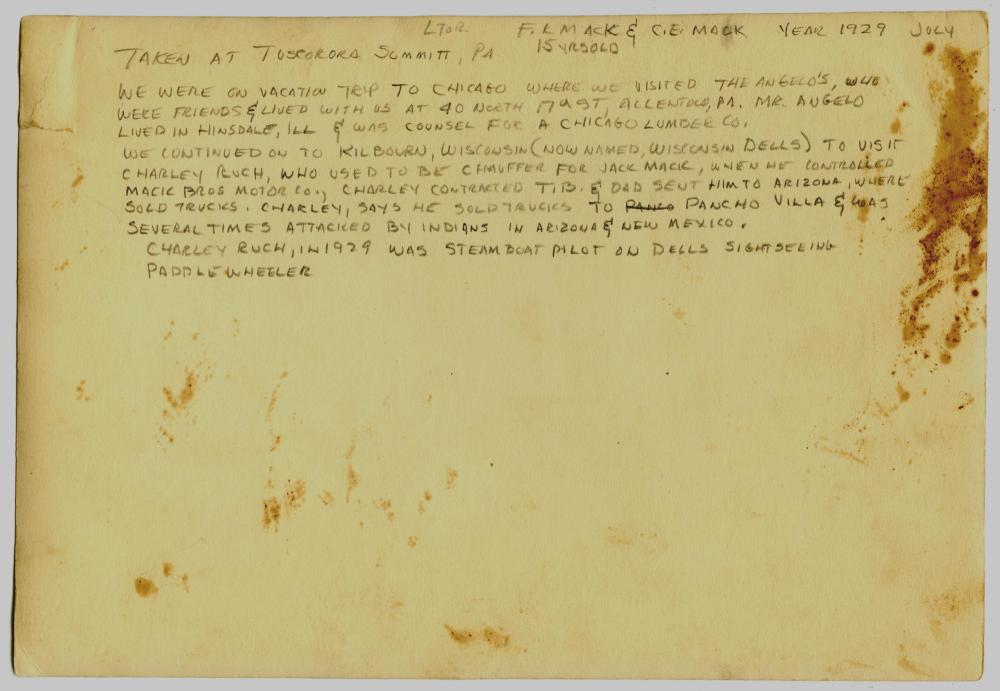 LTOR. F.L. MACK & C.E. MACK YEAR 1929 JULY
15 YRSOLD
TAKEN AT TUSCORORA SUMMITT, PA.
WE WERE ON VACATION TRIP TO CHICAGO WHERE WE VISITED THE ANGELO'S, WHO
WERE FRIENDS & LIVED WITH US AT 40 NORTH 17TH ST, ALLENTOWN, PA. MR. ANGELO
LIVED IN HINSDALE, ILL & WAS COUNSEL FOR A CHICAGO LUMBER CO.
WE CONTINUED ON TO KILBOURN, WISCONSIN (NOW NAMED, WISCONSIN DELLS) TO VISIT
CHARLEY RUCH, WHO USED TO BE CHAUFFER FOR JACK MACK, WHEN HE CONTROLLED
MACK BROS MOTOR CO., CHARLEY CONTRACTED T.B. & DAD SENT HIM TO ARIZONA, WHERE
SOLD TRUCKS. CHARLEY, SAYS HE SOLD TRUCKS TO PANCO PANCHO VILLA & WAS
SEVERAL TIMES ATTACKED BY INDIANS IN ARIZONA & NEW MEXICO.
CHARLEY RUCH, IN 1929 WAS STEAMBOAT PILOT ON DELLS SIGHTSEEING
PADDLE WHEELER